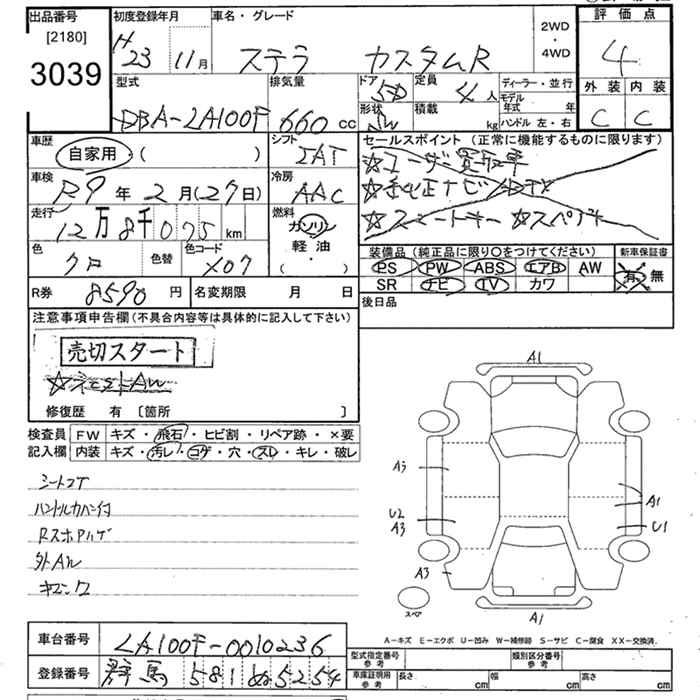 出品番号
[2180]
3039
初度登録年月
H23 11月
車名・グレード
ステラ カスタムR
2WD
・
4WD
評価点
4
外装 内装
C C
型式
DBA-LA100F
排気量
660 CC
ドア
5D
形状
定員
4人
積載
kg
ディーラー・並行
モデル年式 年
ハンドル 左・右
車歴
自家用・( )
シフト
IAT
車検
R9年2月(27日)
冷房
AAC
走行
12万8千075km
燃料
ガソリン
軽油
( ・ )
色
クロ
色替
色コード
X07
セールスポイント (正常に機能するものに限ります)
☆ユーザー買取車
☆純正ナビ
☆スマートキー ☆スペアキー
装備品 (純正品に限り〇をつけてください)
新車保証書
PS PW ABS エアB AW
SR ナビ TV カワ
有・無
後日品
R券 8590円
名変期限 月 日
注意事項申告欄(不具合内容等は具体的に記入して下さい)
売切スタート
修復歴 有 [箇所 ]
検査員
記入欄
FW キズ・飛石・ヒビ割・リペア跡・×要
内装 キズ・汚レ・コゲ・穴・スレ・キレ・破レ
シートコゲ
ハンドルカバー付
外AW
A1
A3
U2
A3
A3
A1
U1
A1
スペア
A-キズ E-エクボ U-凹み W-補修跡 S-サビ C-腐食 XX-交換済
車台番号
LA100F-0010236
登録番号
群馬 581 ぬ 5254
型式指定番号
参考
類別区分番号
参考
車庫証明用
参考
長さ cm
幅 cm
高さ cm